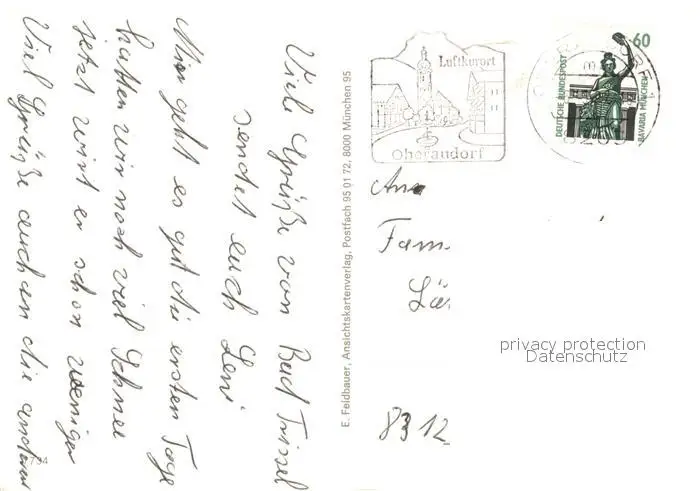 Viele Grüße von Bad Trissel
sendet euch Leni
Mir geht es gut die ersten Tage
hatten wir noch viel Schnee
jetzt wird er schon weniger
Viel Grüße auch an die anderen
E. Feldbauer, Ansichtskartenverlag, Postfach 95 01 72, 8000 München 95
Luftkurort
Oberaudorf
60
DEUTSCHE BUNDESPOST
BAVARIA MÜNCHEN
An
Fam.
Lä
8312
privacy protection
Datenschutz